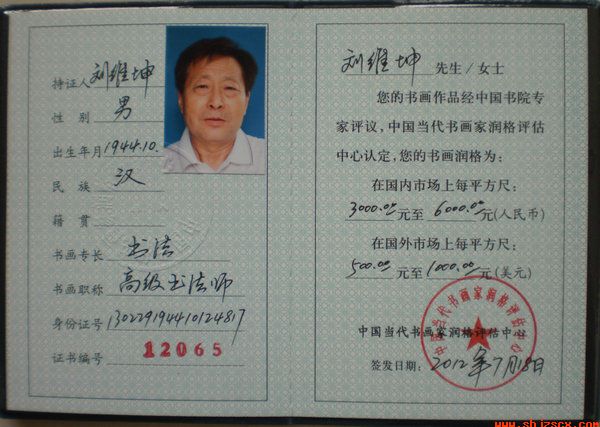 持证人 刘维坤
性别 男
出生年月 1944.10.
民族 汉
籍贯
书画专长 书法
书画职称 高级书法师
身份证号 130229194410124817
证书编号 12065
刘维坤 先生/女士
您的书画作品经中国书院专
家评议，中国当代书画家润格评估
中心认定，您的书画润格为：
在国内市场上每平方尺：
3000.00元至 6000.00元(人民币)
在国外市场上每平方尺：
500.00 元至 1000.00元(美元)
中国当代书画家润格评估中心
中国当代书画家润格评估中心
签发日期：2012年7月18日
www.shjzscx.com